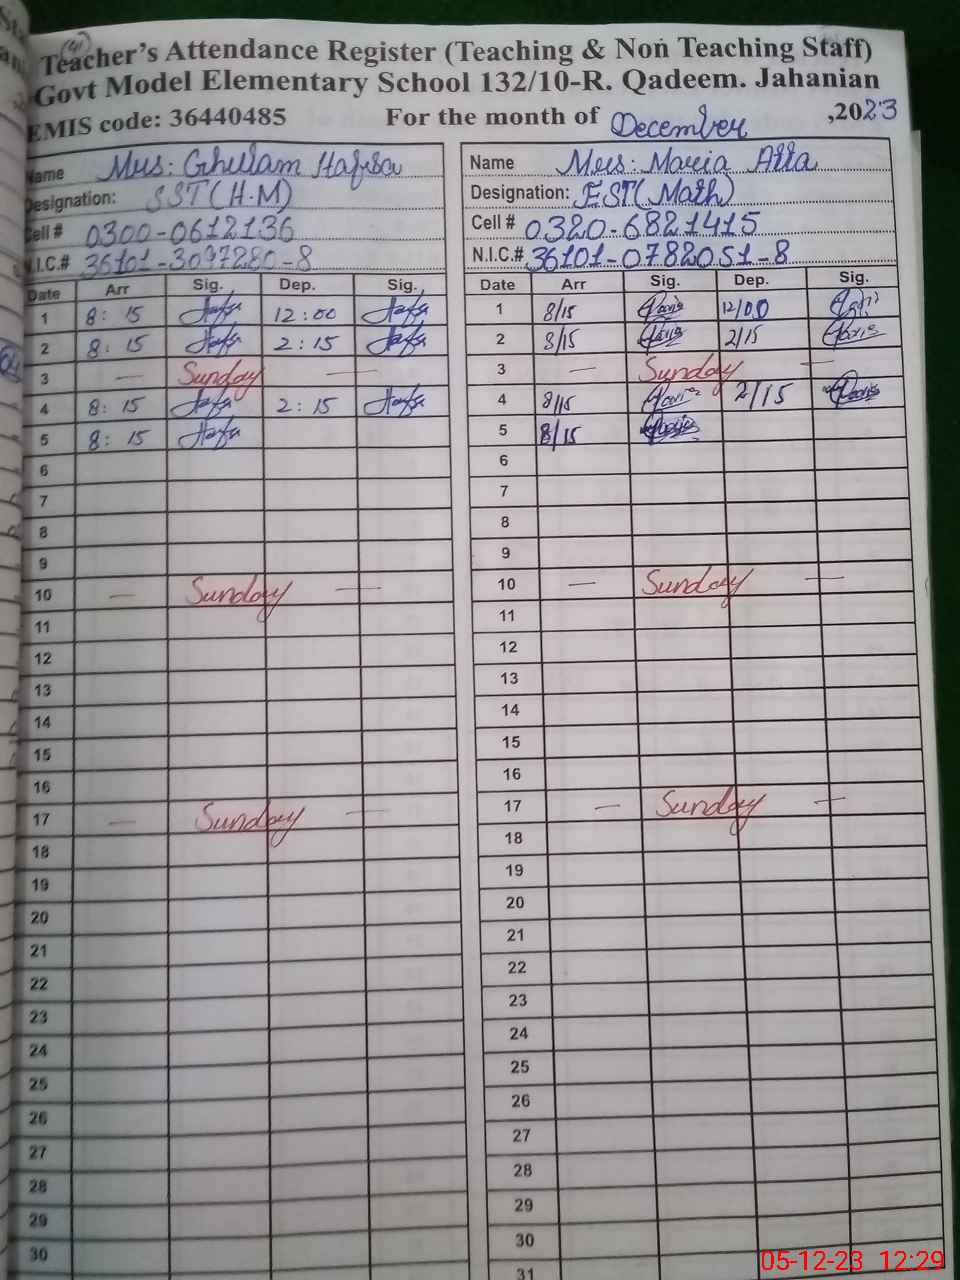 Teacher's Attendance Register (Teaching & Non Teaching Staff)
Govt Model Elementary School 132/10-R. Qadeem. Jahanian
EMIS code: 36440485 For the month of December ,2023
Name Mus: Ghulam Hafsa
Designation: SST (H.M)
Cell # 0300-0612136
N.I.C.# 36101-3097280-8
Date Arr Sig. Dep. Sig.
1 8:15 Hafsa 12:00 Hafsa
2 8:15 Hafsa 2:15 Hafsa
3 — Sunday —
4 8:15 Hafsa 2:15 Hafsa
5 8:15 Hafsa
6
7
8
9
10 — Sunday —
11
12
13
14
15
16
17 — Sunday —
18
19
20
21
22
23
24
25
26
27
28
29
30
Name Mus: Maria Atta
Designation: EST (Math)
Cell # 0320-6821415
N.I.C.# 36101-0782051-8
Date Arr Sig. Dep. Sig.
1 8/15 12/00
2 8/15 2/15
3 — Sunday —
4 8/15 2/15
5 8/15
6
7
8
9
10 — Sunday —
11
12
13
14
15
16
17 — Sunday —
18
19
20
21
22
23
24
25
26
27
28
29
30
31
05-12-23 12:29